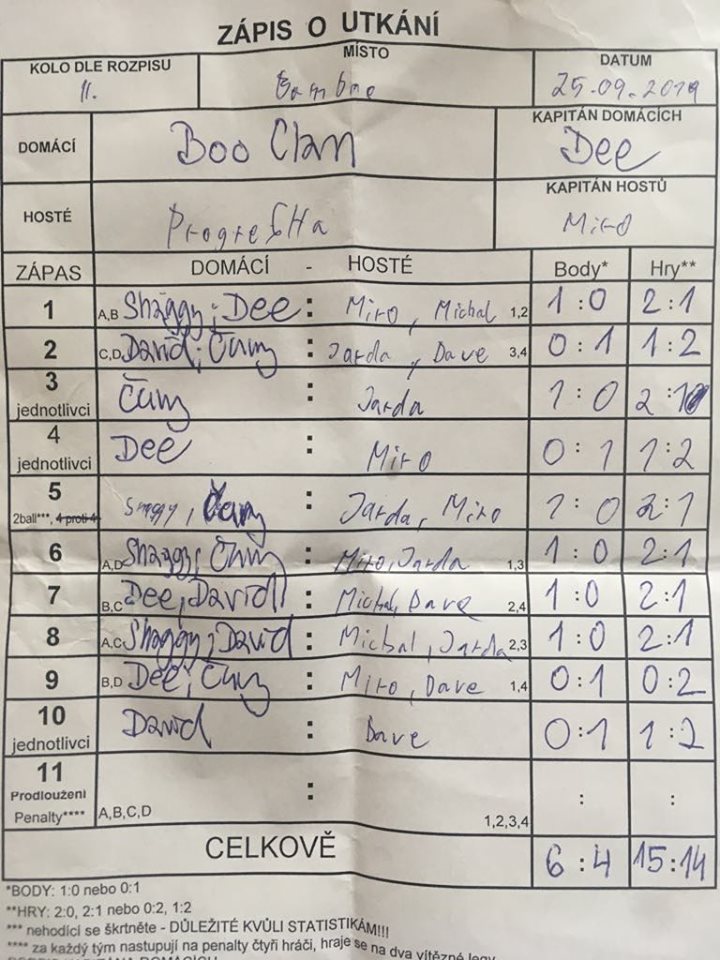 ZÁPIS O UTKÁNÍ
KOLO DLE ROZPISU MÍSTO DATUM
11. 25.09.2019
DOMÁCÍ Boo Clan KAPITÁN DOMÁCÍCH Dee
HOSTÉ KAPITÁN HOSTŮ Miro
ZÁPAS DOMÁCÍ - HOSTÉ Body* Hry**
1 A,B Shaggy; Dee : Miro, Michal 1,2 1:0 2:1
2 C,D David; Čumy : Jarda, Dave 3,4 0:1 1:2
3 jednotlivci Čumy : Jarda 1:0 2:1
4 jednotlivci Dee : Miro 0:1 1:2
5 2ball***, 4 proti 4 Shaggy, Čumy : Jarda, Miro 1:0 2:1
6 A,D Shaggy; Čumy : Miro, Jarda 1,3 1:0 2:1
7 B,C Dee; David : Michal, Dave 2,4 1:0 2:1
8 A,C Shaggy; David : Michal, Jarda 2,3 1:0 2:1
9 B,D Dee; Čumy : Miro, Dave 1,4 0:1 0:2
10 jednotlivci David : Dave 0:1 1:2
11 Prodloužení Penalty**** A,B,C,D : 1,2,3,4 : :
CELKOVĚ 6:4 15:14
*BODY: 1:0 nebo 0:1
**HRY: 2:0, 2:1 nebo 0:2, 1:2
*** nehodící se škrtněte - DŮLEŽITÉ KVŮLI STATISTIKÁM!!!
**** za každý tým nastupují na penalty čtyři hráči, hraje se na dva vítězné legy